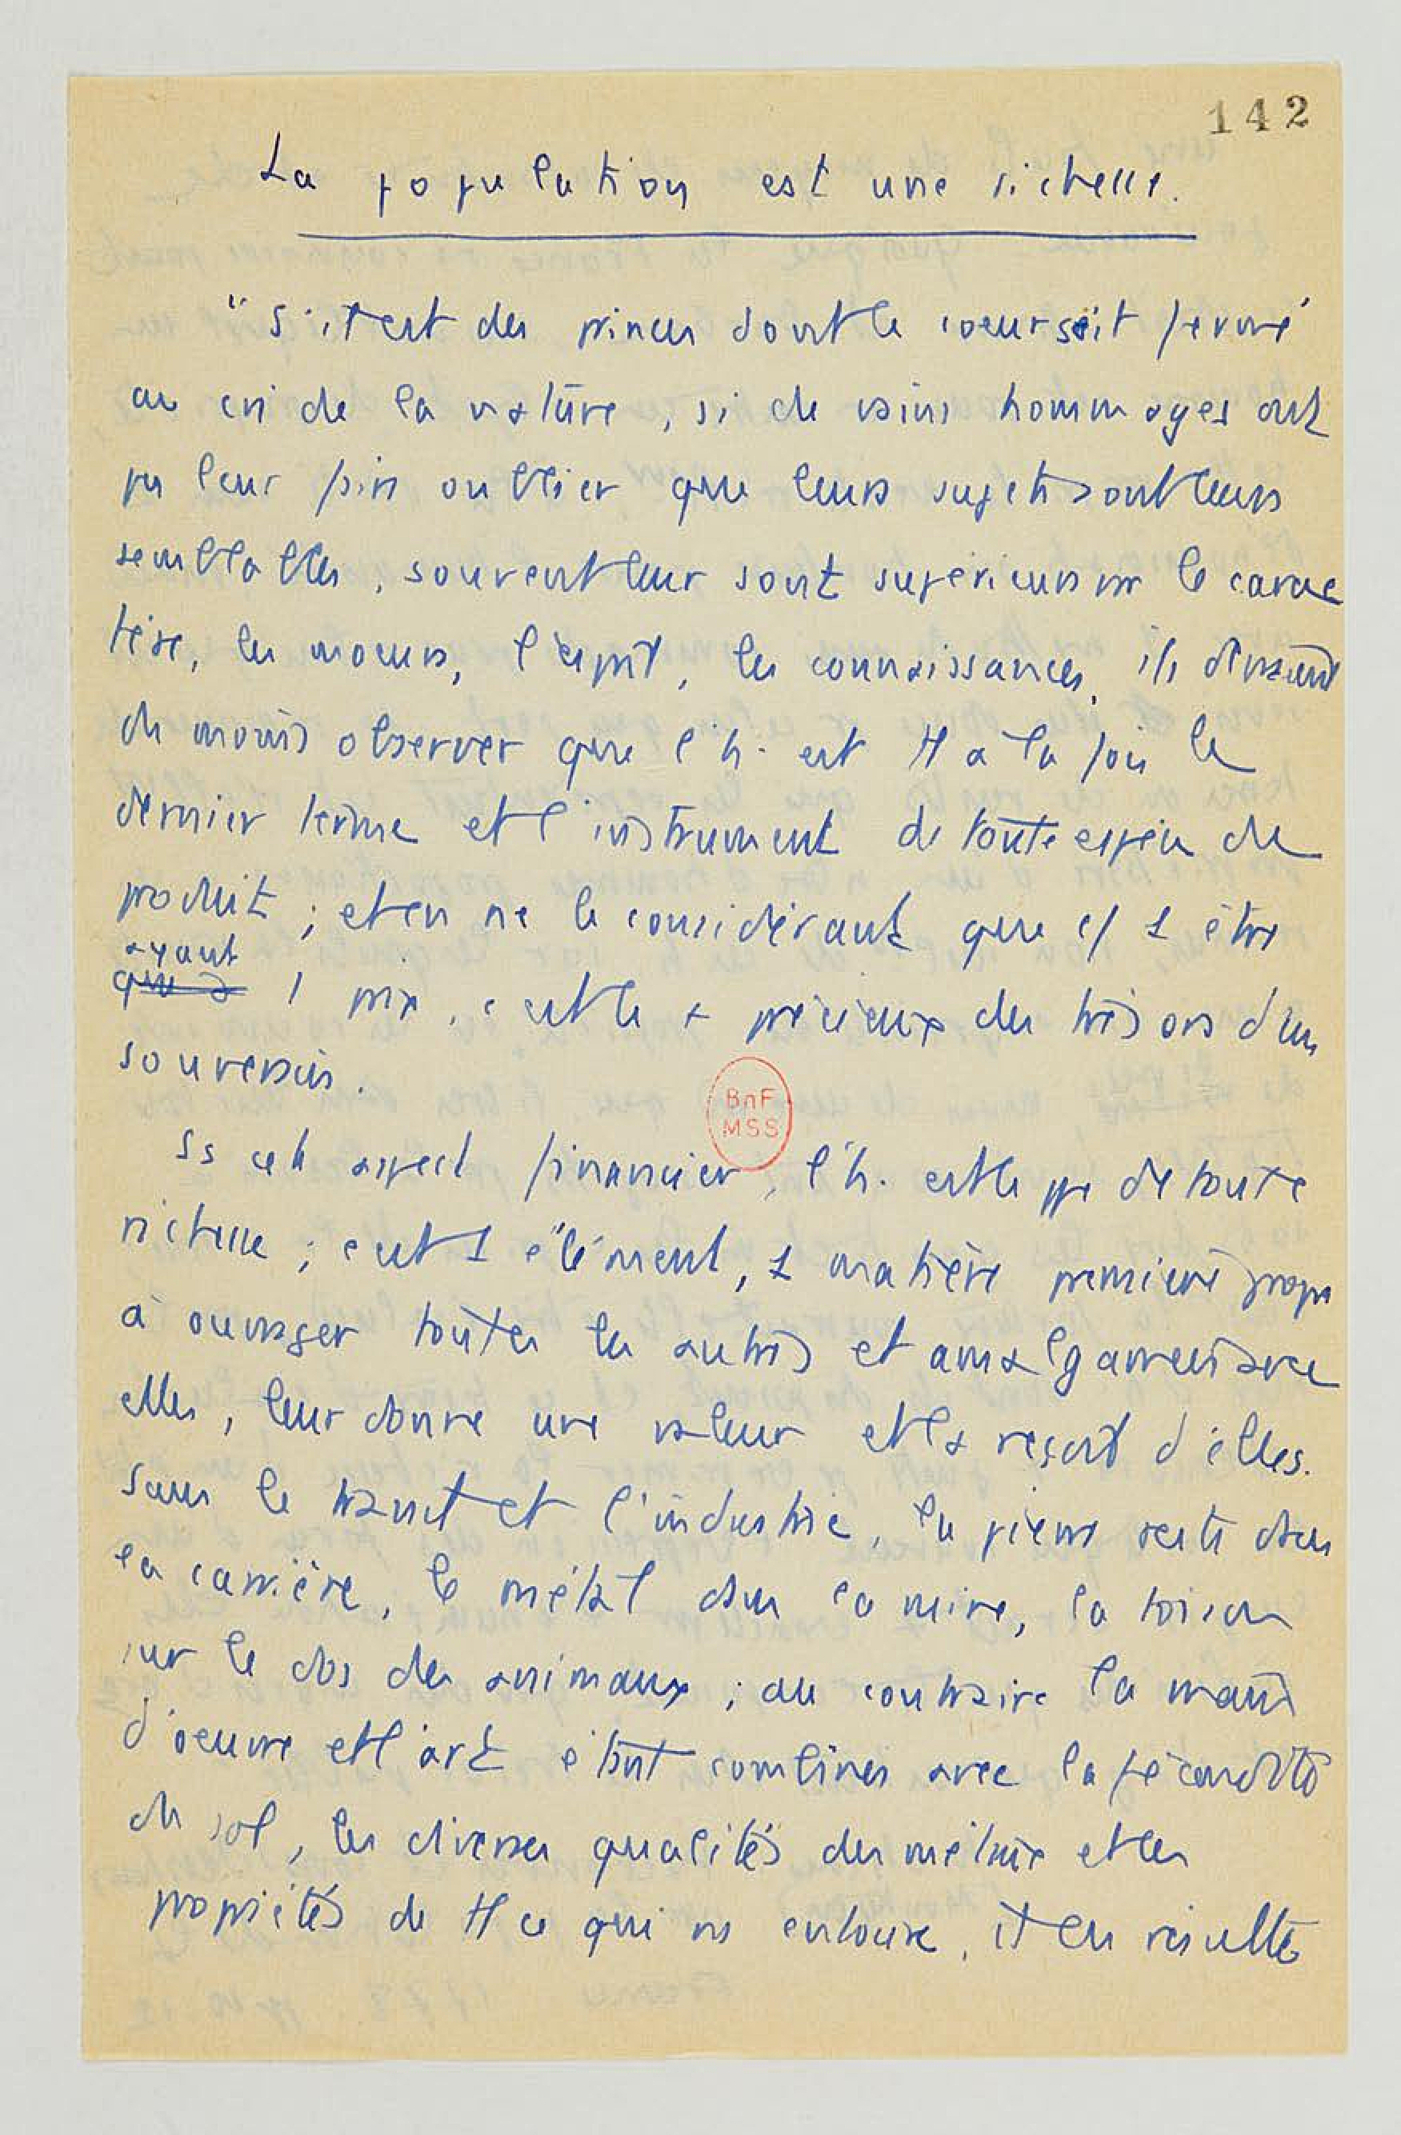 142
La population est une richesse.
"S'il est des princes dont le coeur soit fermé
au cri de la nature, si de vains hommages ont
pu leur faire oublier que leurs sujets sont leurs
semblables, souvent leur sont supérieurs par le carac
tère, les moeurs, l'esprit, les connaissances, ils devraient
du moins observer que l'h. est tt à la fois le
dernier terme et l'instrument de toute espèce de
produit ; et en ne le considérant que c/ 1 être
ayant
que 1 prix, c'est le + précieux des trésors d'un
souverain.
BnF
MSS
Ss cet aspect financier, l'h. est le ppe de toute
richesse ; c'est 1 élément, 1 matière première propre
à ouvrager toutes les autres et amalgamée avec
elles, leur donne une valeur et la reçoit d'elles.
Sans le travail et l'industrie, la pierre reste dans
la carrière, le métal dans la mine, la toison
sur le dos des animaux ; au contraire la main
d'oeuvre et l'art étant combinés avec la fécondité
du sol, les diverses qualités des métaux et les
propriétés de tt ce qui ns entoure, il en résulte